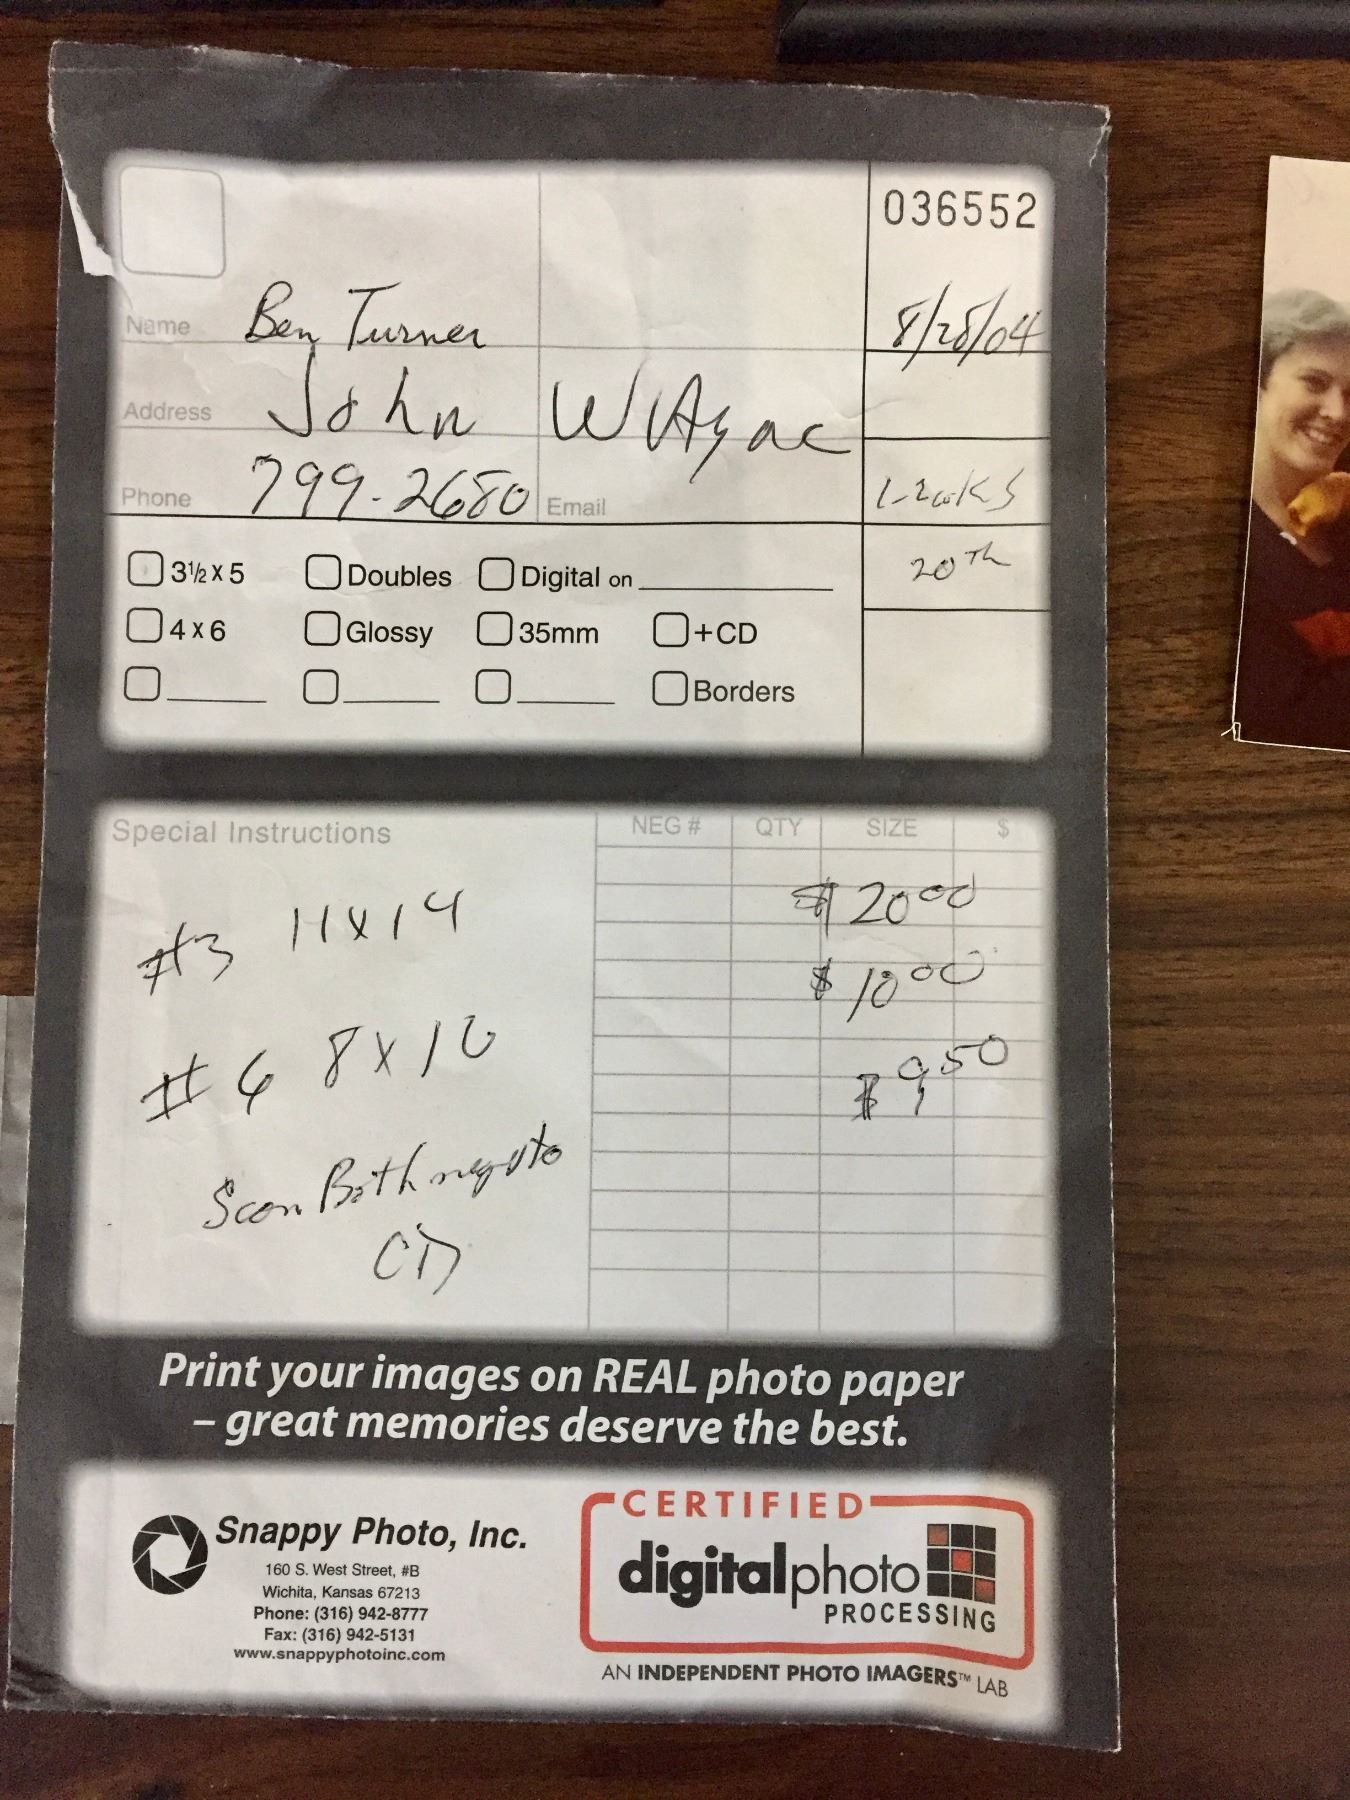 036552
Name Ben Turner
8/28/04
Address John
Phone 799-2680 Email
20th
3½ x 5 Doubles Digital on
4 x 6 Glossy 35mm +CD
Borders
Special Instructions NEG # QTY SIZE $
#3 11x14 $ 20.00
#6 8x10 $ 10.00
$ 9.50
Scan Both to
CD
Print your images on REAL photo paper
– great memories deserve the best.
Snappy Photo, Inc.
160 S. West Street, #B
Wichita, Kansas 67213
Phone: (316) 942-8777
Fax: (316) 942-5131
www.snappyphotoinc.com
CERTIFIED
digitalphoto
PROCESSING
AN INDEPENDENT PHOTO IMAGERS™ LAB